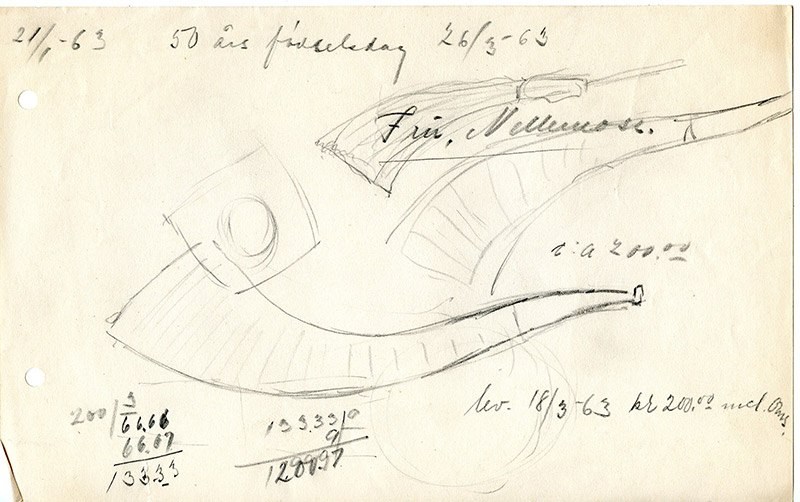 21/1-63 50 års fødselsdag 26/3-63
Fru. Nellemose.
c:a 200.00
lev. 18/3-63 kr 200.00 incl. Oms.
200/3
66.66
66.67
133.33
133.33/9
9